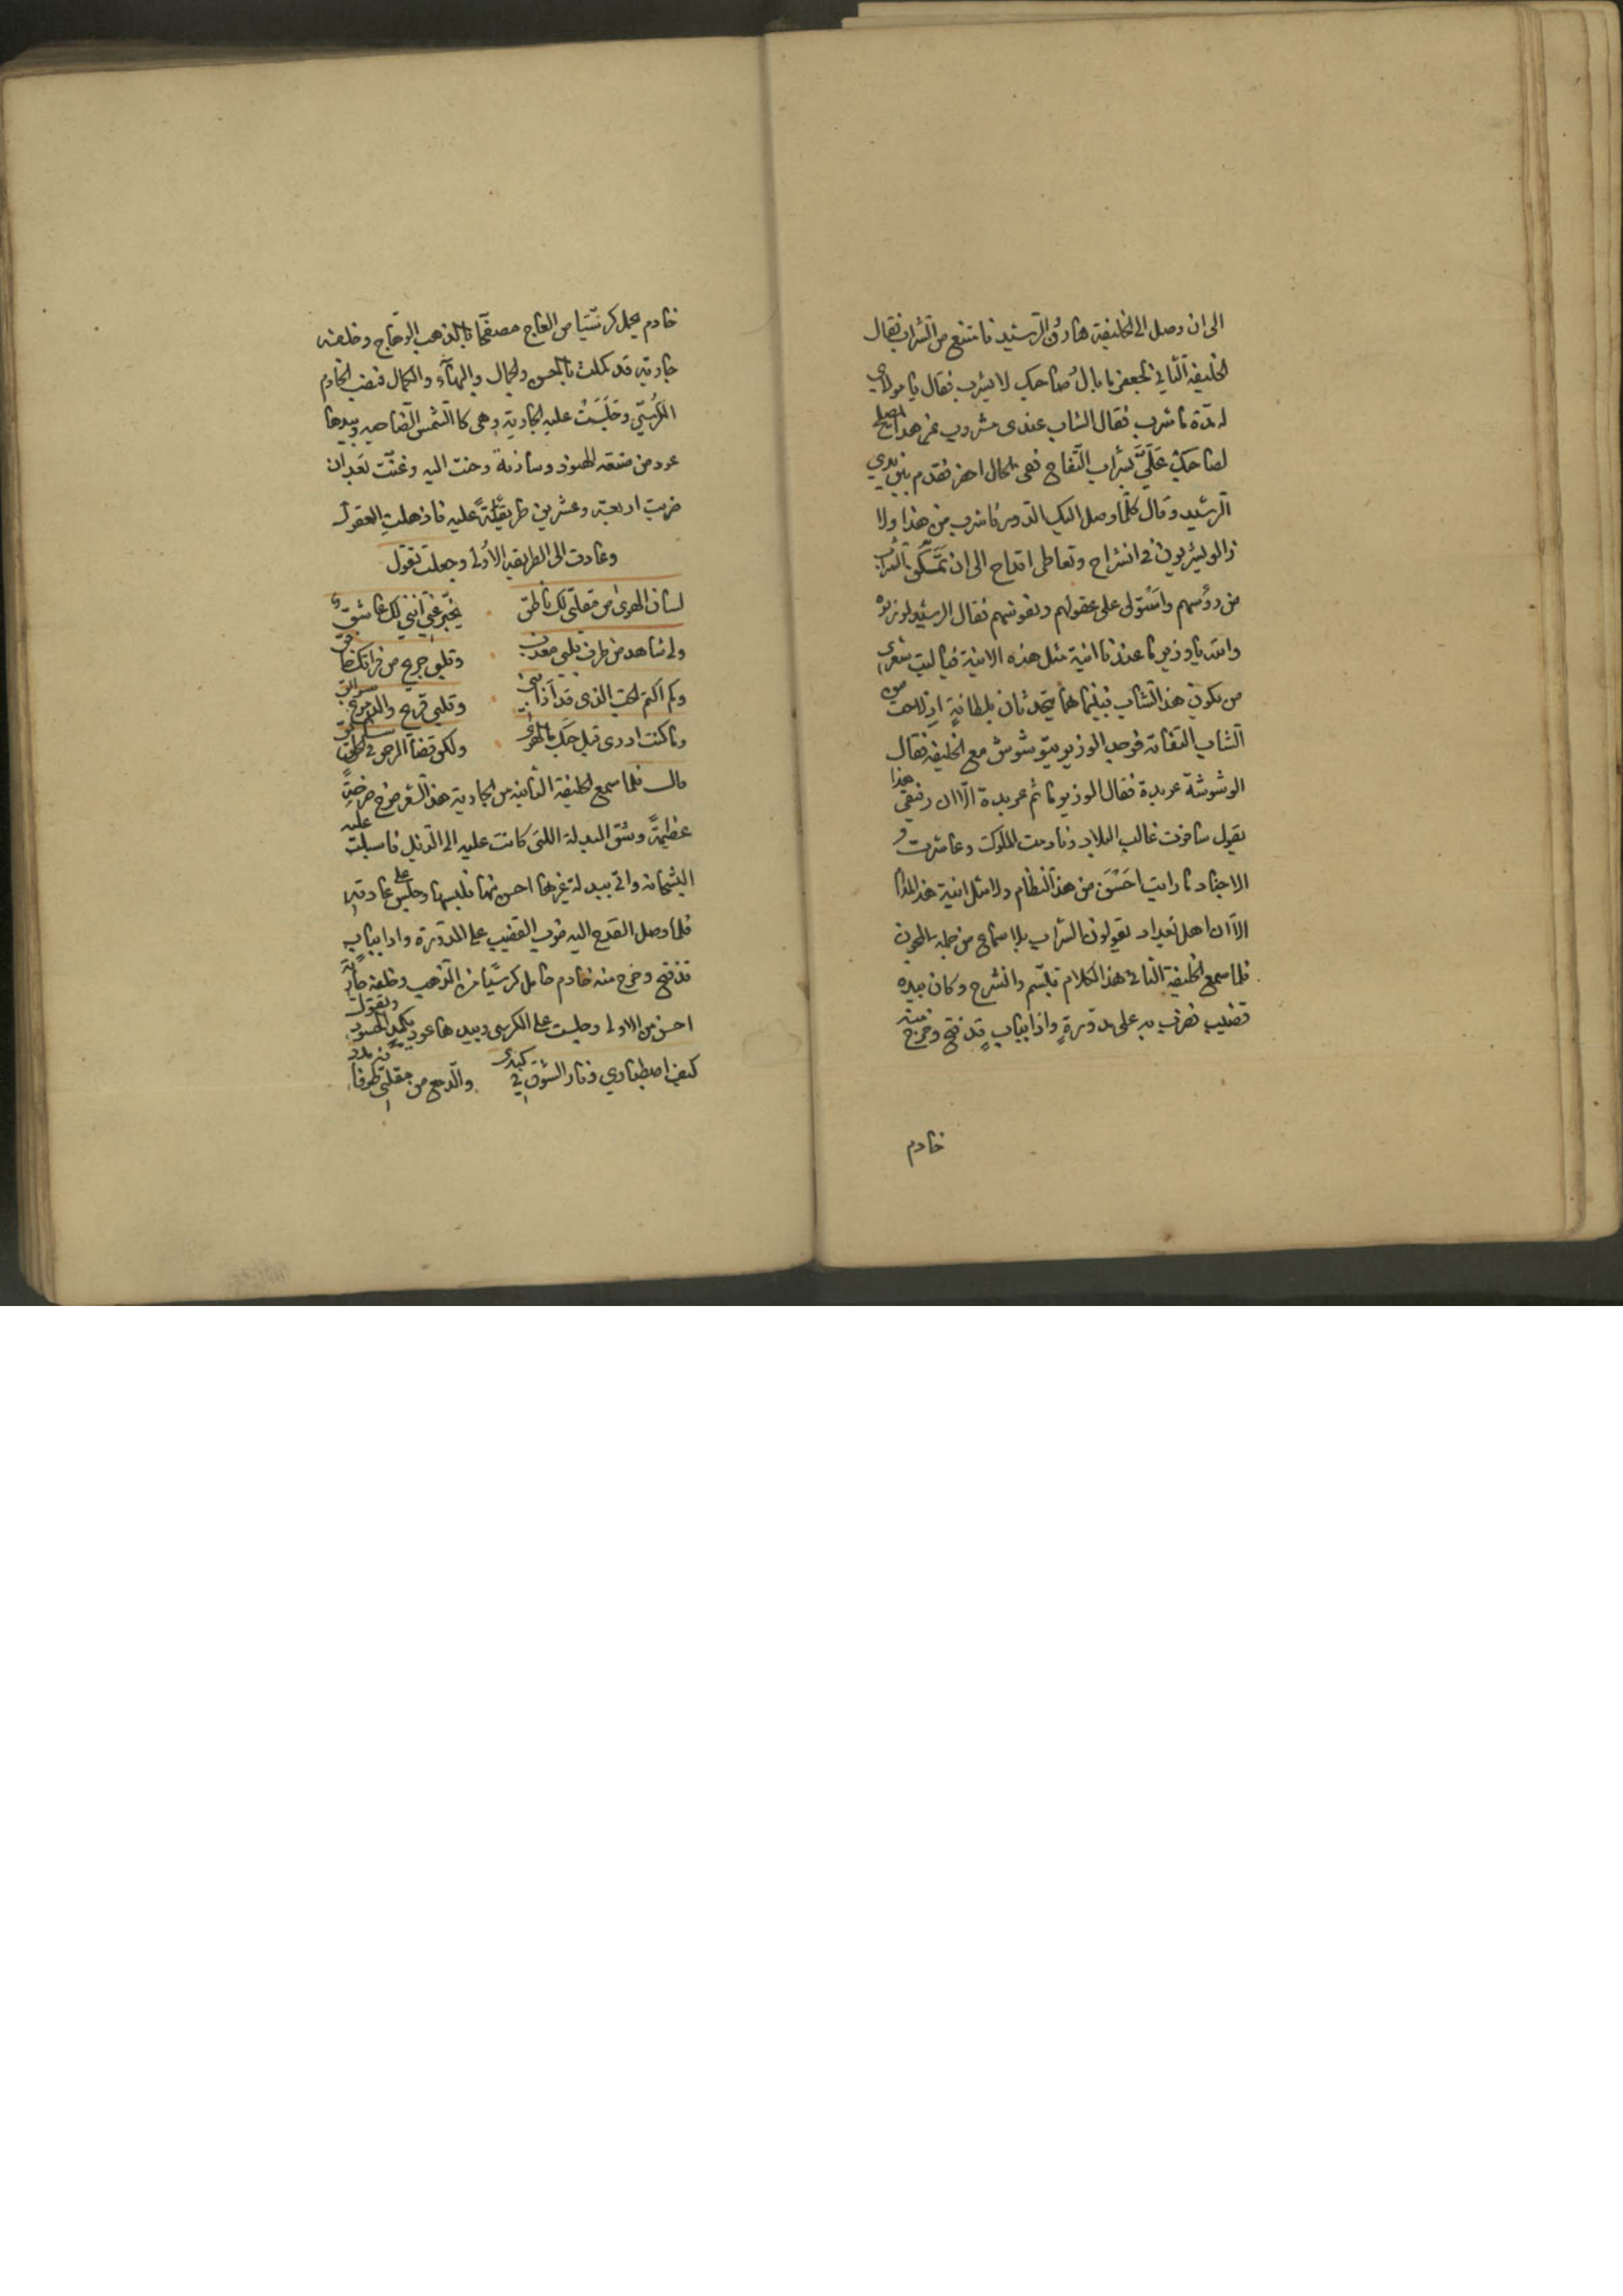 الى ان وصل الى الخليفة هارون الرشيد فامتنع من الشراب فقال
الخليفة الثاني لجعفر ما بال صاحبك لا يشرب فقال يا مولاي
له مدة ما شرب فقال الشاب عندي مشروب غير هذا يصلح
لصاحبك عليّ بشراب التفاح ففي الحال احضر فقدم بين يدي
الرشيد وقال كلما وصل اليك الدور فاشرب من هذا ولا
زالو يشربون في انشراح وتعاطي اقداح الى ان تمكن الشراب
من رؤسهم واستولى على عقولهم ونفوسهم فقال الرشيد لوزيره
والله يا وزير ما عندنا انية مثل هذه الانية فياليت شعري
من يكون هذا الشاب فبينما هما يتحدثان بلطافة اذ لاحت من
الشاب التفاتة فوجد الوزير يتوشوش مع الخليفة فقال
الوشوشة عربدة فقال الوزير ما ثم عربدة الا ان رفيقي هذا
يقول سافرت غالب البلاد ونادمت الملوك وعاشرت
الاجناد ما رايت احسن من هذا النظام ولا مثل انية هذا المدام
الا ان اهل بغداد يقولون الشراب بلا سماع من جملة
فلما سمع الخليفة الثاني هذا الكلام تبسم وانشرح وكان بيده
قضيب فضرب به على مدورة واذا بباب قد فتح وخرج منه
خادم
خادم يحمل كرسيا من العاج مصفحا بالذهب الوهاج وخلفه
جارية قد كملت بالحسن والجمال والبهاء والكمال فنصب الخادم
الكرسي وجلست عليه الجارية وهي كالشمس الضاحيه وبيدها
عود من صنعة الهنود وساندته وحنت اليه وغنت بعد ان
ضربت اربعة وعشرين طريقة عليه فاذهلت العقول
وعادت الى الطريقة الأولى وجعلت تقول
لسان الهوى من مقلتي لك ناطق يخبر عني انني لك عاشق
ولي شاهد من طرف قلبي معذب وقلبي جريح من فراقك خافق
وكم اكتم الحب الذي قد أذابني وقلبي قريح والدموع سوابق
وما كنت ادري قبل حبك ما الهوى ولكن قضا الرحمن في الخلق سابق
قال فلما سمع الخليفة الثاني من الجارية هذا الشعر صرخ صرخة
عظيمة وشق البدلة اللتي كانت عليه الى الذيل فاسبلت عليه
البشخانة واتي ببدلة غيرها احسن منها فلبسها وجلس على عادته
فلما وصل القدح اليه ضرب القضيب على المدورة واذا بباب
قد فتح وخرج منه خادم حامل كرسيا من الذهب وخلفه جارية
احسن من الاولى وجلست على الكرسي وبيدها عود يكمد الحسود وتقول
كيف اصطباري ونار الشوق في كبدي والدمع من مقلتي طوفانه مدد